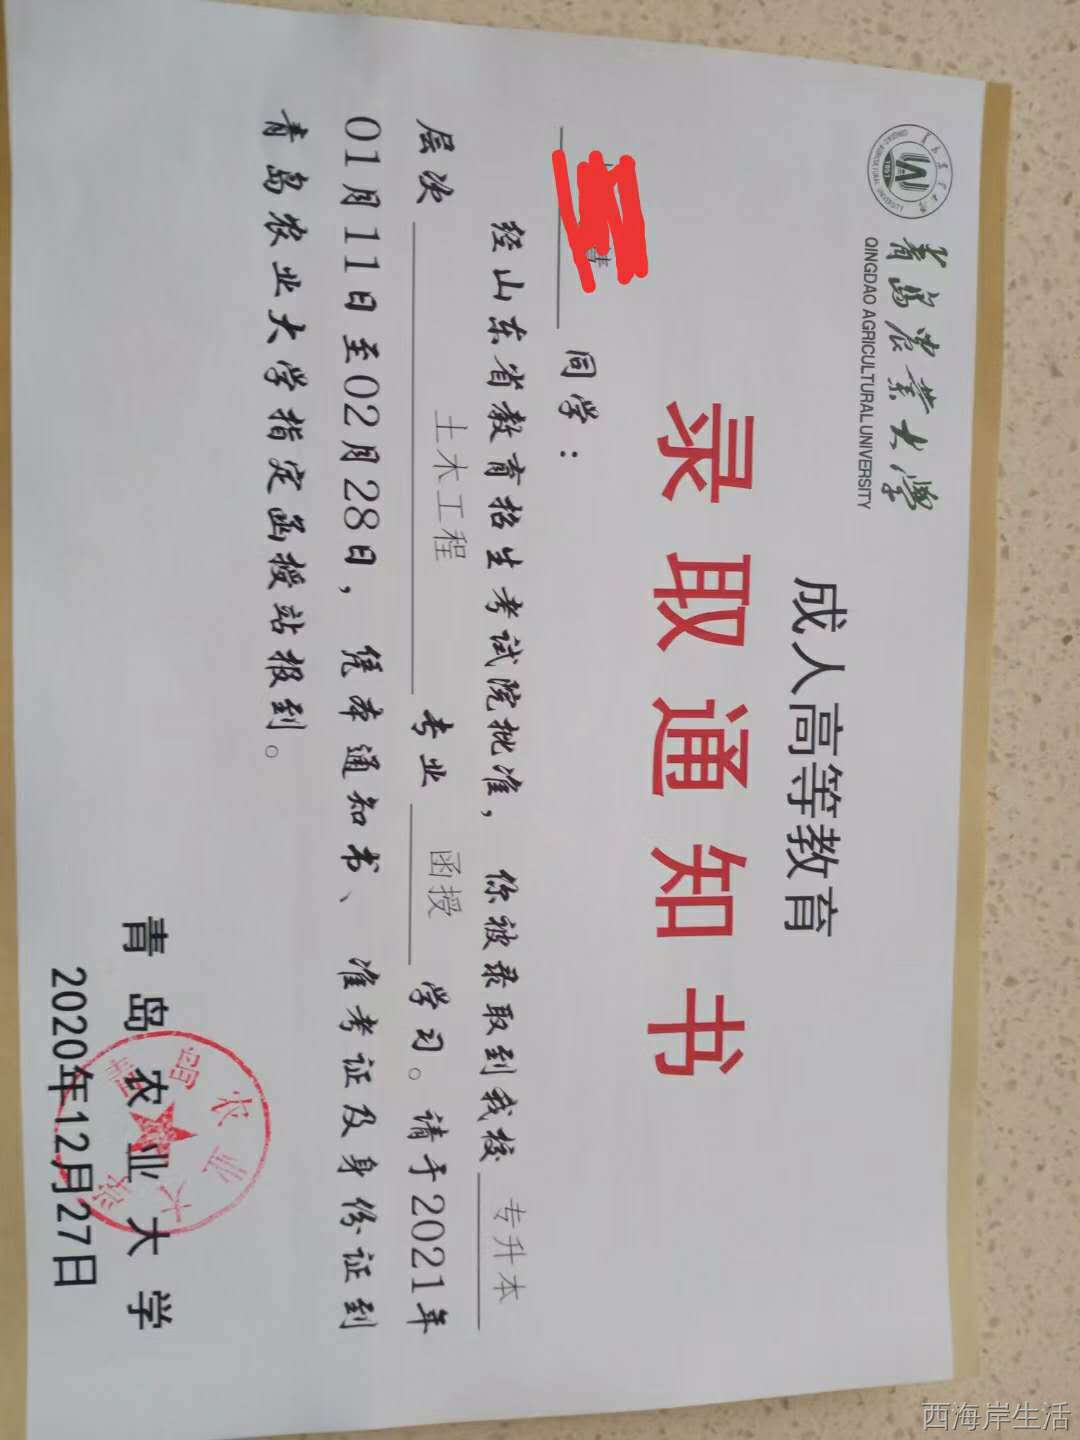 青岛农业大学
QINGDAO AGRICULTURAL UNIVERSITY
成人高等教育
录取通知书
同学：
经山东省教育招生考试院批准，你被录取到我校 专升本
层次 土木工程 专业 函授 学习。请于2021年
01月11日至02月28日，凭本通知书、准考证及身份证到
青岛农业大学指定函授站报到。
青岛农业大学
2020年12月27日
青岛农业大学
西海岸生活